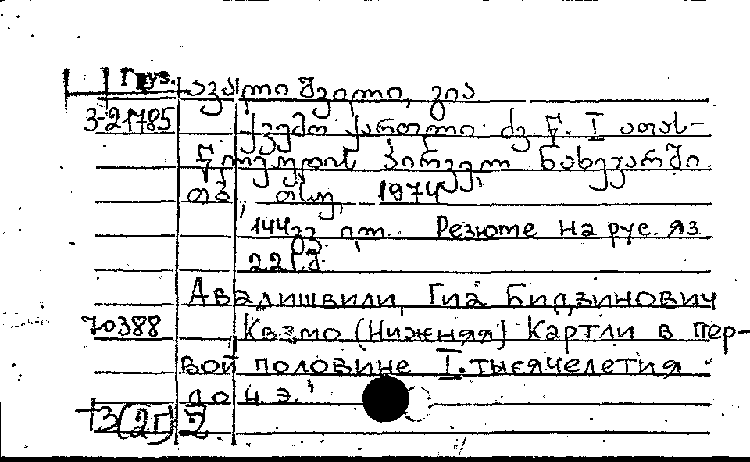 Груз. ავალიშვილი, გია
3-21785 ქვემო ქართლი ძვ. წ. I ათას-
წლეულის პირველ ნახევარში.
თბ., თსუ, 1974
144 გვ.
Резюме на рус. яз.
22 გვ.
Авалишвили, Гиа Бидзинович
70388 Квэмо (Нижняя) Картли в пер-
вой половине I. тысячелетия
до н э.